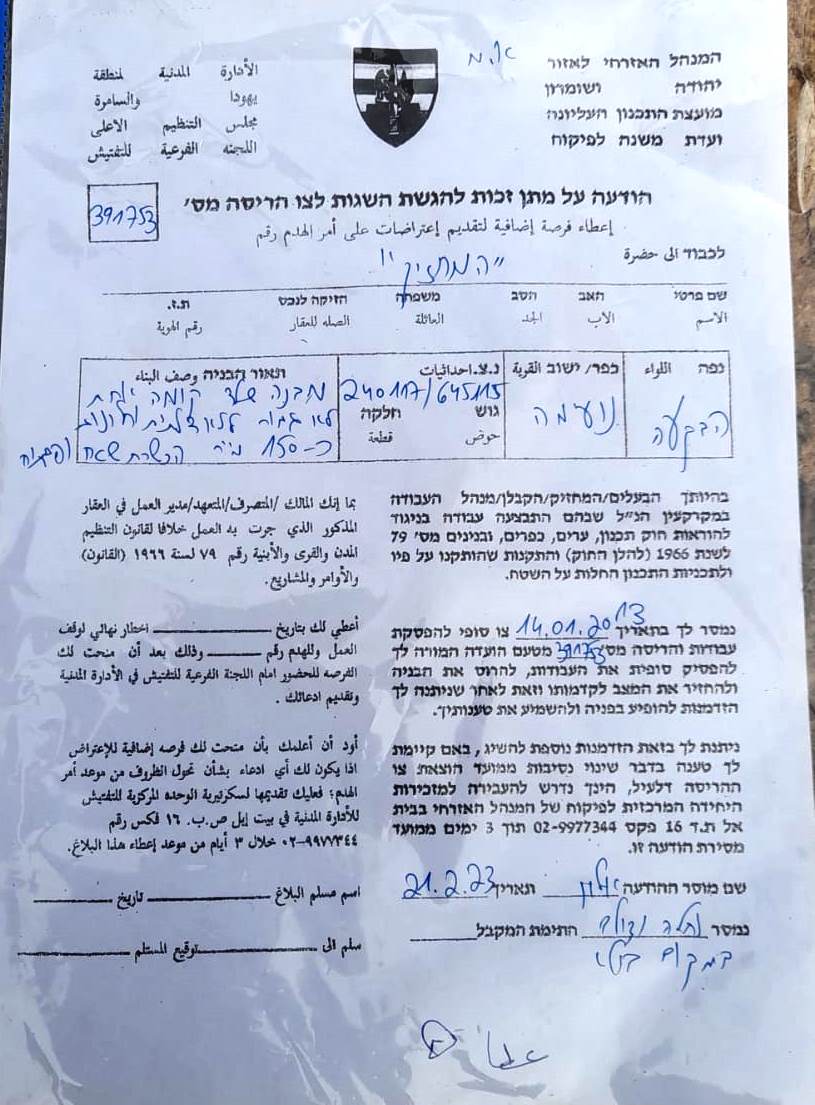 המנהל האזרחי לאזור
יהודה ושומרון
מועצת התכנון העליונה
ועדת משנה לפיקוח
الأدارة المدنية لمنطقة
يهودا والسامرة
مجلس التنظيم الاعلى
اللجنه الفرعية للتفتيش
הודעה על מתן זכות להגשת השגות לצו הריסה מס׳
391753
إعطاء فرصة إضافية لتقديم إعتراضات على أمر الهدم رقم
לכבוד الى حضرة
"המחזיק"
שם פרטי האב הסב משפחה הזיקה לנכס ת.ז.
الأسم الاب الجد العائلة الصله للعقار رقم الهوية
נפה اللواء
הבקעה
כפר/ ישוב القرية
נועימה
נ.צ. احداثيات
240117/645115
גוש חלקה
حوض قطعة
תאור הבניה وصف البناء
מבנה שלד קומה אחת
לא גמור ללא דלתות וחלונות
כ-150 מ"ר הכשרת שטח
בהיותך הבעלים/המחזיק/הקבלן/מנהל העבודה
במקרקעין הנ״ל שבהם התבצעה עבודה בניגוד
להוראות חוק תכנון, ערים, כפרים, ובנינים מס׳ 79
לשנת 1966 (להלן החוק) והתקנות שהותקנו על פיו
ולתכניות התכנון החלות על השטח.
נמסר לך בתאריך 14.01.2013 צו סופי להפסקת
עבודות והריסה מס׳ 391753 מטעם הועדה המורה לך
להפסיק סופית את העבודות, להרוס את הבניה
ולהחזיר את המצב לקדמותו וזאת לאחר שניתנה לך
הזדמנות להופיע בפניה ולהשמיע את טענותיך.
ניתנת לך בזאת הזדמנות נוספת להשיג, באם קיימת
לך טענה בדבר שינוי נסיבות ממועד הוצאת צו
ההריסה דלעיל, הינך נדרש להעבירה למזכירות
היחידה המרכזית לפיקוח של המנהל האזרחי בבית
אל ת.ד 16 פקס 02-9977344 תוך 3 ימים ממועד
מסירת הודעה זו.
שם מוסר ההודעה תאריך 21.2.23
נמסר התימת המקבל
במקום
بما إنك المالك /المتصرف/المتعهد/مدير العمل في العقار
المذكور الذي جرت به العمل خلافا لقانون التنظيم
المدن والقرى والأبنية رقم ٧٩ لسنة ١٩٦٦ (القانون)
والأوامر والمشاريع.
أعطي لك بتاريخ اخطار نهائي لوقف
العمل وللهدم رقم وذلك بعد أن منحت لك
الفرصه للحضور امام اللجنة الفرعية للتفتيش في الأدارة المدنية
وتقديم ادعائك .
أود أن أعلمك بأن منحت لك فرصه إضافية للإعتراض
اذا يكون لك أي ادعاء بشأن تحول الظروف من موعد أمر
الهدم؛ فعليك تقديمها لسكرتيرية الوحده المركزية للتفتيش
للأدارة المدنية في بيت إيل ص.ب. ١٦ فكس رقم
٠٢-٩٩٧٧٣٤٤ خلال ٣ أيام من موعد إعطاء هذا البلاغ.
اسم مسلم البلاغ تاريخ
سلم الى توقيع المستلم